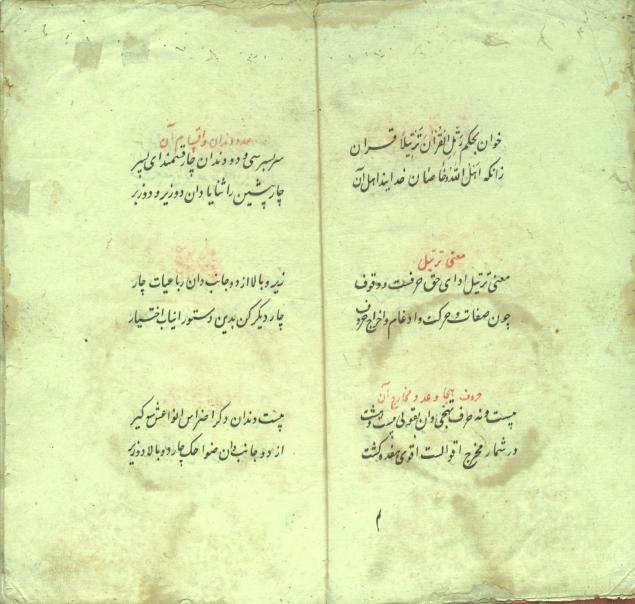 خوان بحکم رتّل القرآن ترتیلا قرآن
زانکه اهل الله و خاصان خدایند اهل آن
معنی ترتیل
معنی ترتیل ادای حق حرفست و وقوف
چون صفات و حرکت و ادغام و اخراج حروف
حروف تهجا و عدد مخارج آن
بیست و نه حرف تهجی دان بقولی بیست و هشت
در شمار مخرج اقوالست اقوی هفده گشت
م
عدد دندان و اقسام آن
سربسر سی و دو دندان چار قسمند ای پسر
چار پیشین را ثنایا دان دو زیر و دو زبر
زیر و بالا از دو جانب دان رباعیات چار
چار دیگر کن بدین دستور انیاب اختیار
بیست دندان دگر اضراس انواعش سه گیر
از دو جانب دان ضواحک چار دو بالا دو زیر